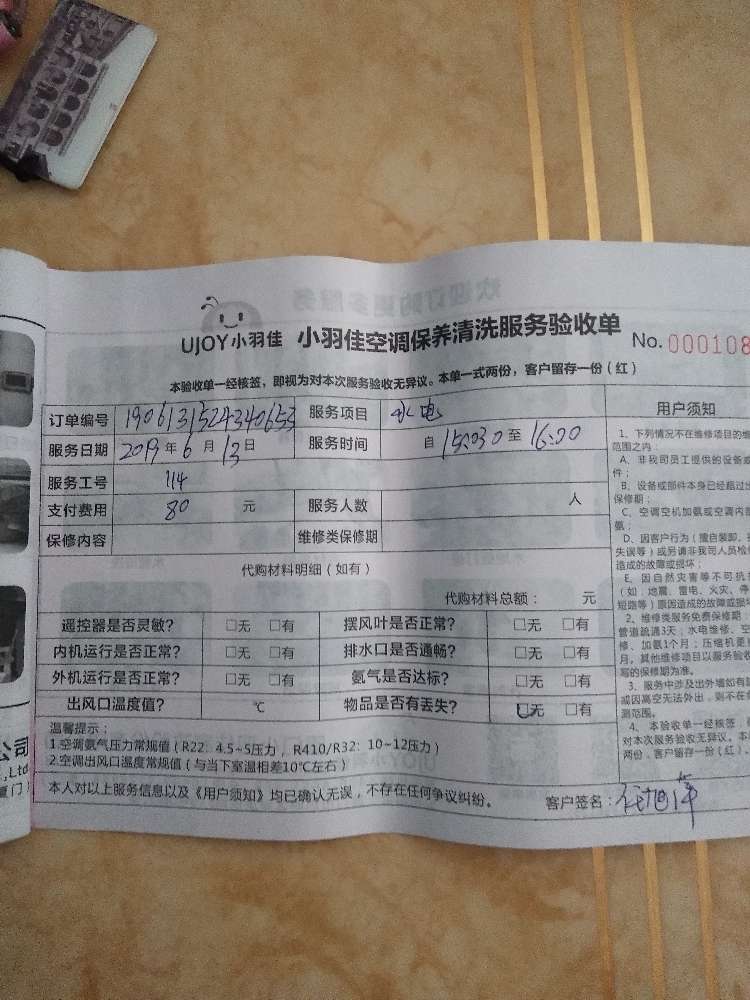 UJOY小羽佳 小羽佳空调保养清洗服务验收单 No.000108
本验收单一经核签，即视为对本次服务验收无异议。本单一式两份，客户留存一份（红）
订单编号 190613152434065 服务项目 水电
服务日期 2019年6月13日 服务时间 自15:030至16:00
服务工号 114
支付费用 80 元 服务人数 人
保修内容 维修类保修期
代购材料明细（如有）
代购材料总额： 元
遥控器是否灵敏？ □无 □有 摆风叶是否正常？ □无 □有
内机运行是否正常？ □无 □有 排水口是否通畅？ □无 □有
外机运行是否正常？ □无 □有 氨气是否达标？ □无 □有
出风口温度值？ ℃ 物品是否有丢失？ □无 □有
温馨提示：
1.空调氨气压力常规值（R22：4.5~5压力，R410/R32：10~12压力）
2.空调出风口温度常规值（与当下室温相差10℃左右）
本人对以上服务信息以及《用户须知》均已确认无误，不存在任何争议纠纷。 客户签名：
用户须知
1、下列情况不在维修项目的维
范围之内：
A、非我司员工提供的设备或
件；
B、设备或部件本身已经超过出
保修期；
C、空调空机加氨或空调内部
氨；
D、因客户行为（擅自装卸、
失误等）或另请非我司人员检修
造成的故障或损坏；
E、因自然灾害等不可抗
（如：地震、雷电、火灾、停
短路等）原因造成的故障或损坏
2、维修类服务免费保修期：
管道疏通3天；水电维修、空
修、加氨1个月；压缩机更
月，其他维修项目以服务验收
写的保修期为准。
3、服务中涉及出外墙如有
或因高空无法外出，则不在
测范围。
4、本验收单一经核签，
对本次服务验收无异议。本
两份，客户留存一份（红）。
公司
,Ltd
厦门